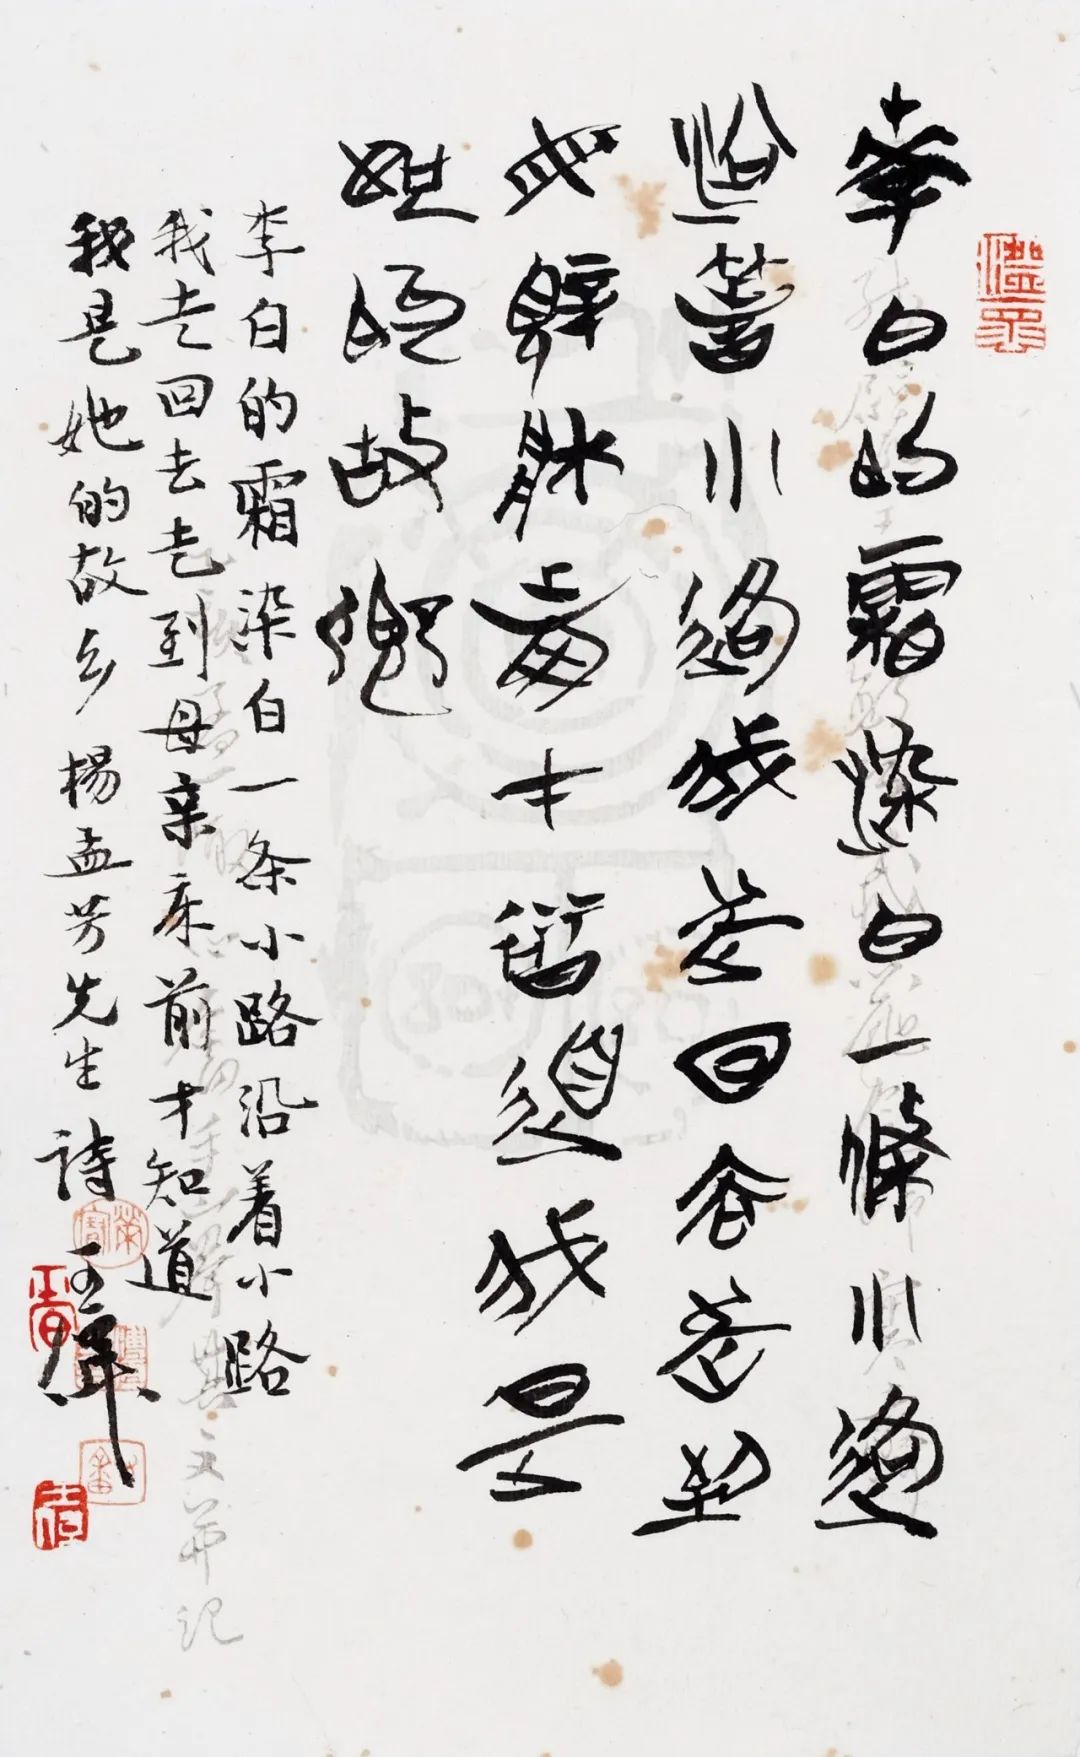 李白的霜染白一條小路
沿着小路我去回去走到
母親床前才知道我是
她的故鄉
李白的霜染白一条小路沿着小路
我走回去走到母亲床前才知道
我是她的故乡 楊孟芳先生詩